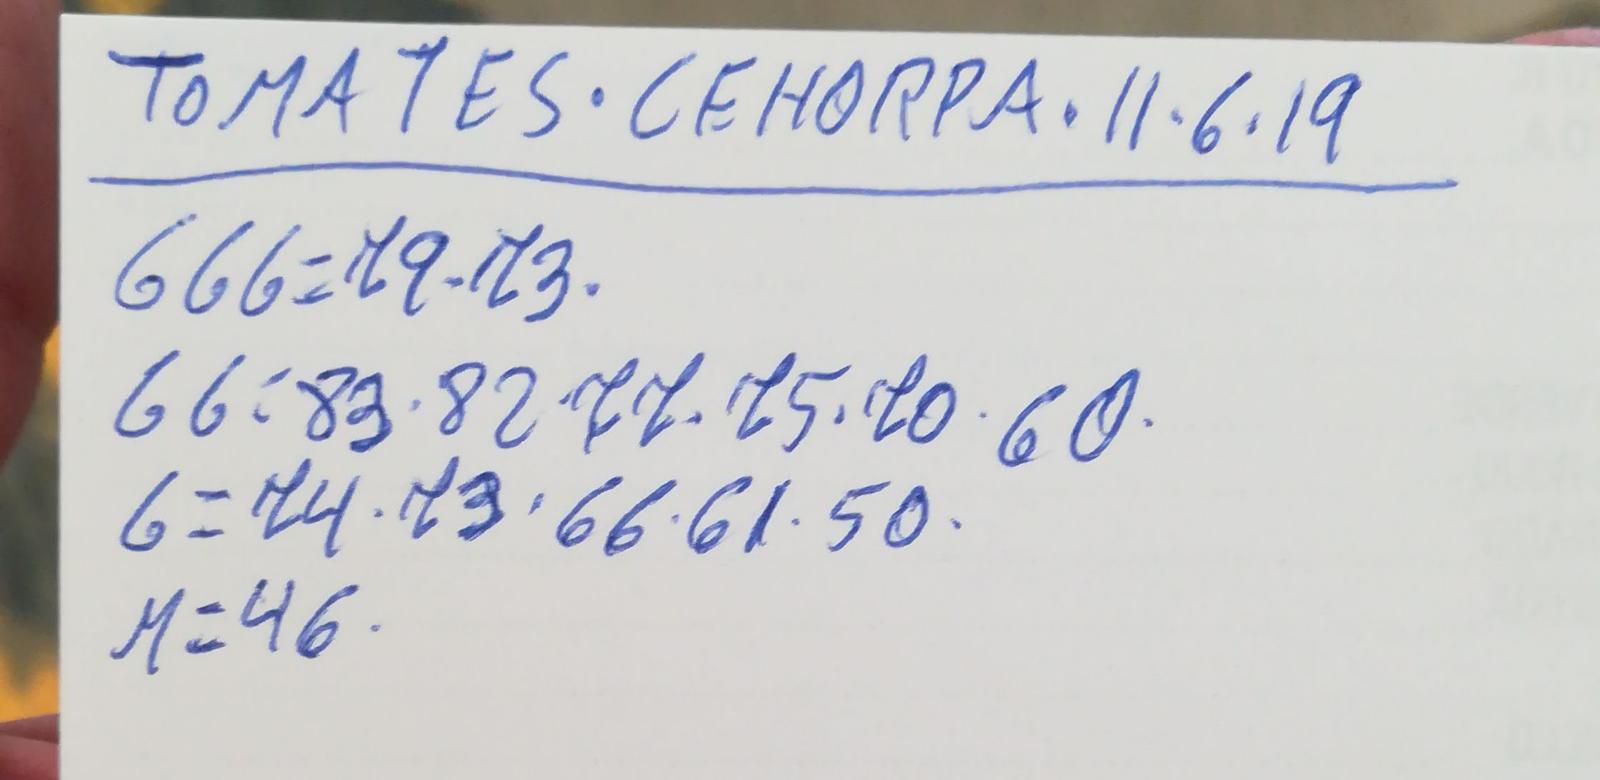 TOMATES·CEHORPA·11·6·19
666=79-73.
66=83·82·77·75·70·60·
6=74·73·66·61·50·
M=46·